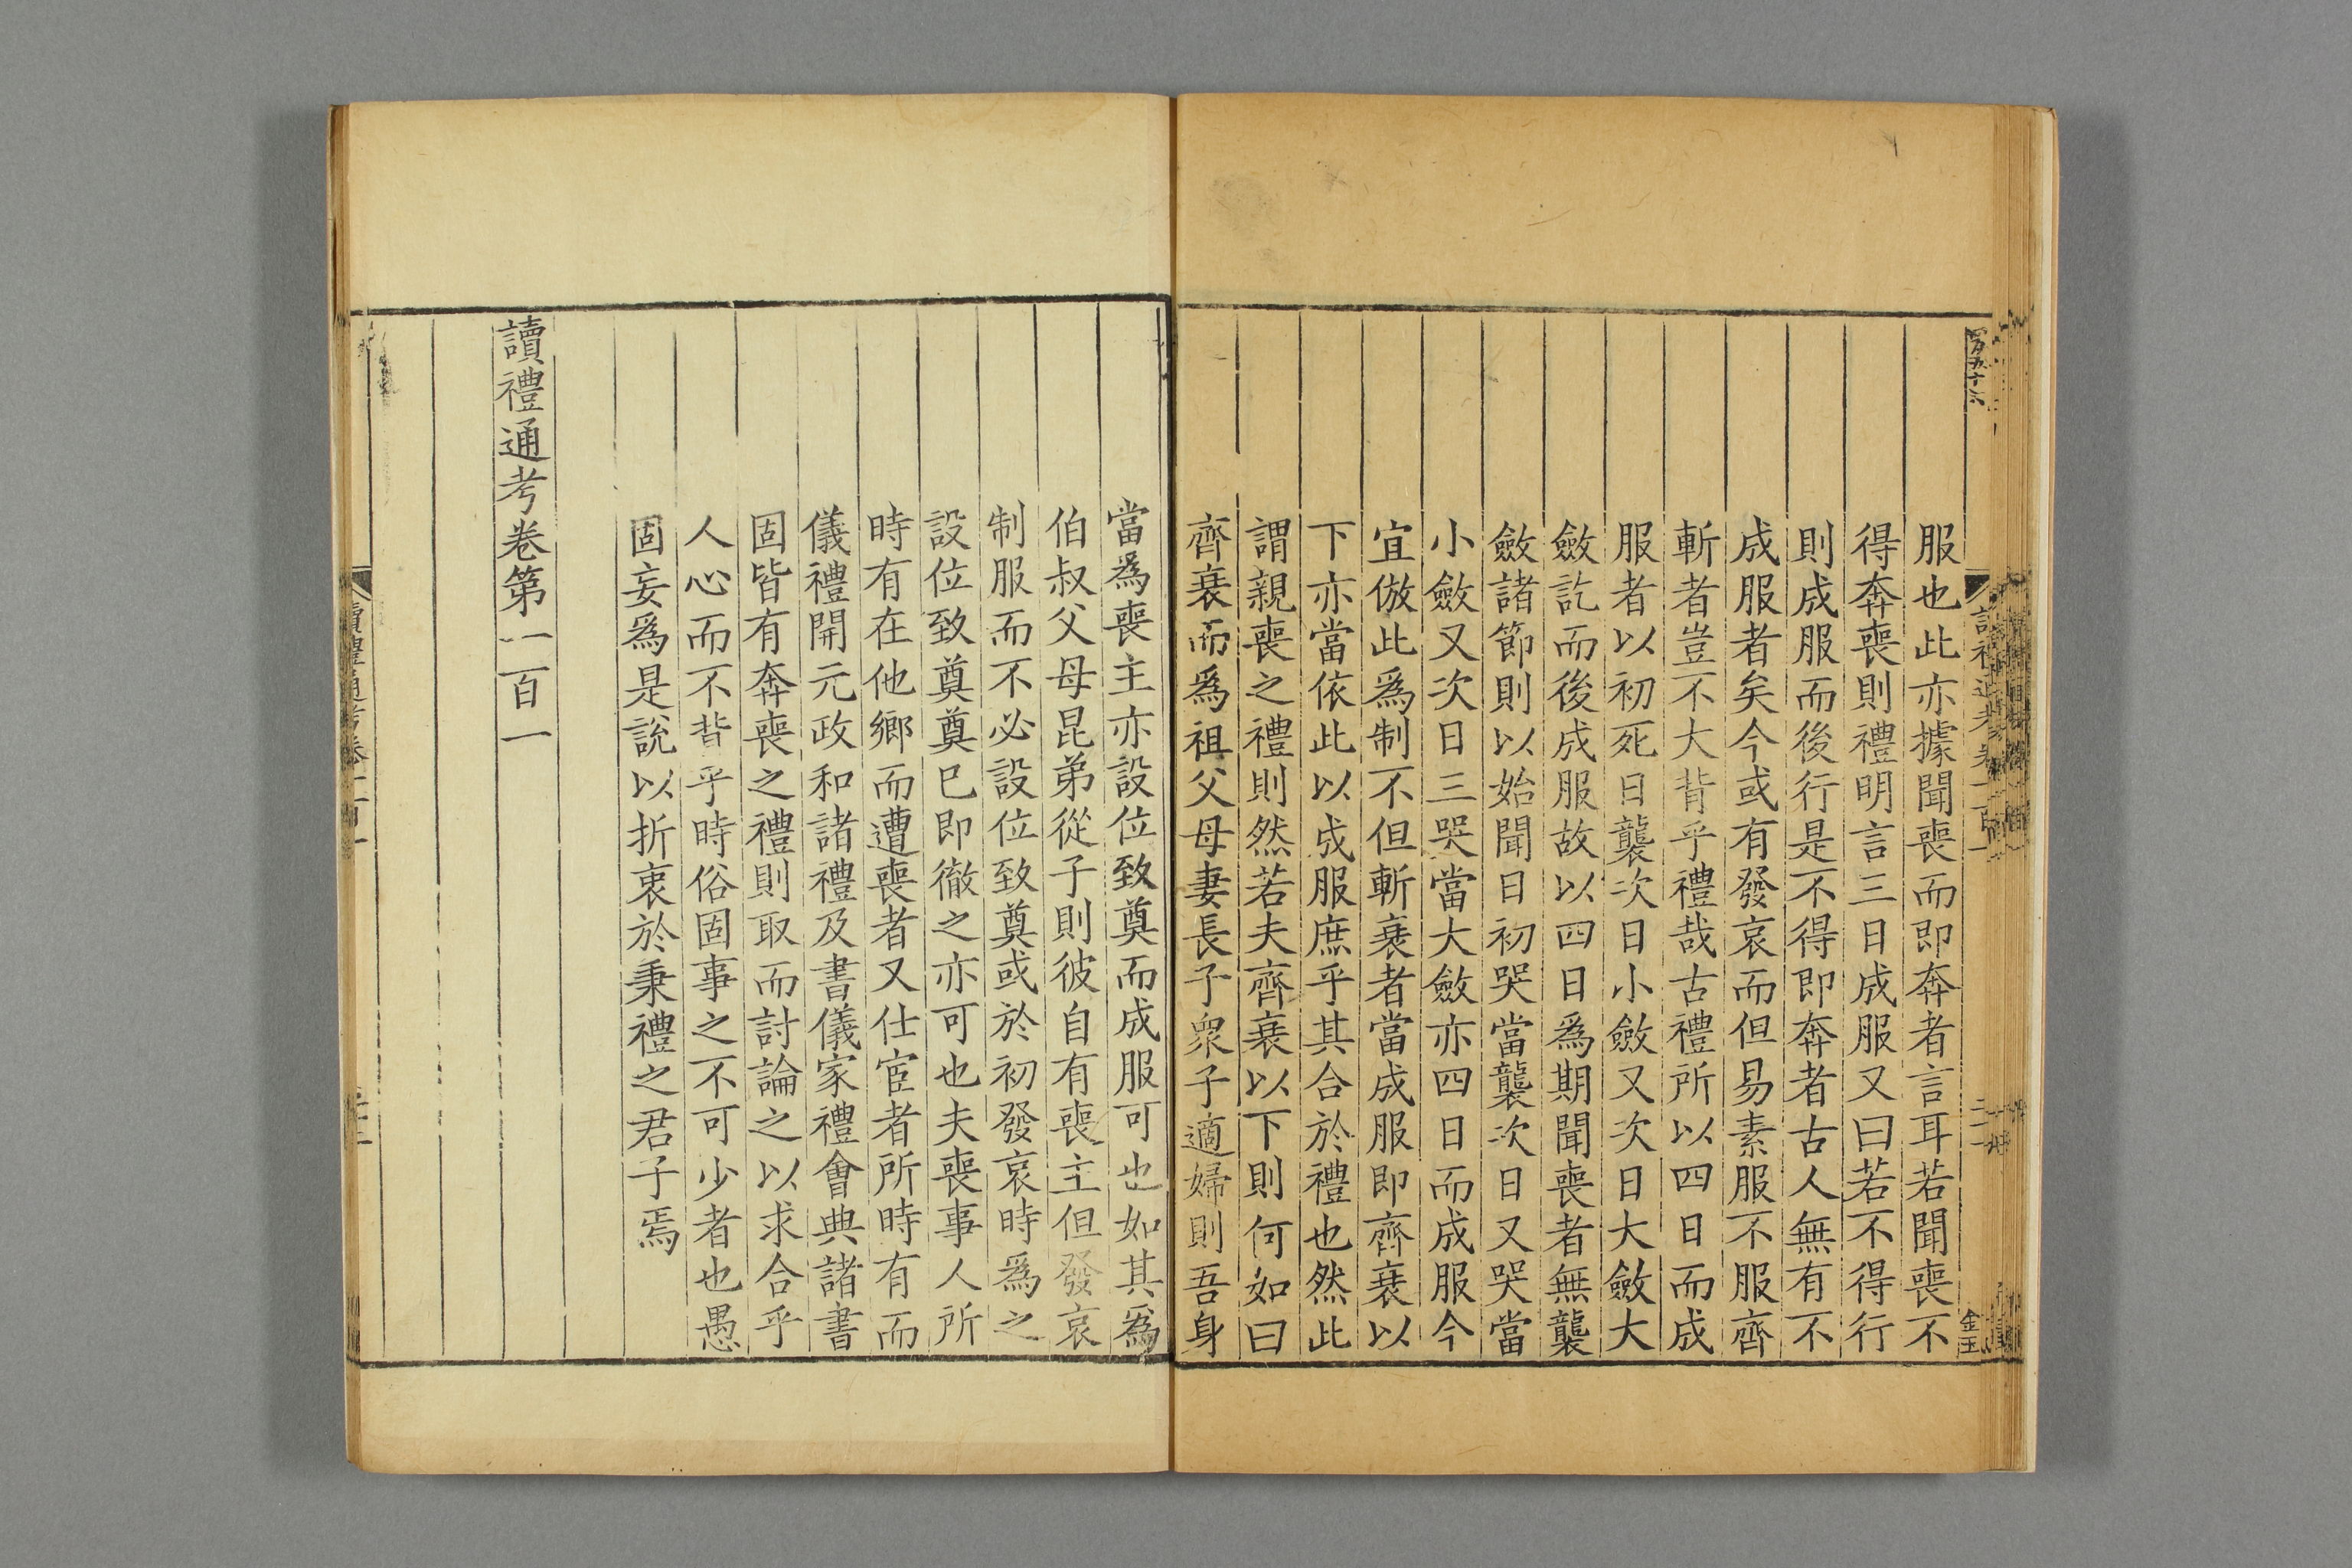 服也此亦據聞喪而即奔者言耳若聞喪不
得奔喪則禮明言三日成服又曰若不得行
則成服而後行是不得即奔者古人無有不
成服者矣今或有發哀而但易素服不服齊
斬者豈不大背乎禮哉古禮所以四日而成
服者以初死日襲次日小斂又次日大斂大
斂訖而後成服故以四日為期聞喪者無襲
斂諸節則以始聞日初哭當襲次日又哭當
小斂又次日三哭當大斂亦四日而成服今
宜倣此為制不但斬衰者當成服即齊衰以
下亦當依此以成服庶乎其合於禮也然此
謂親喪之禮則然若夫齊衰以下則何如曰
齊衰而為祖父母妻長子衆子適婦則吾身
當為喪主亦設位致奠而成服可也如其為
伯叔父母昆弟從子則彼自有喪主但發哀
制服而不必設位致奠或於初發哀時為之
設位致奠奠已即徹之亦可也夫喪事人所
時有在他鄉而遭喪者又仕宦者所時有而
儀禮開元政和諸禮及書儀家禮會典諸書
固皆有奔喪之禮則取而討論之以求合乎
人心而不背乎時俗固事之不可少者也愚
固妄為是說以折衷於秉禮之君子焉
讀禮通考卷第一百一